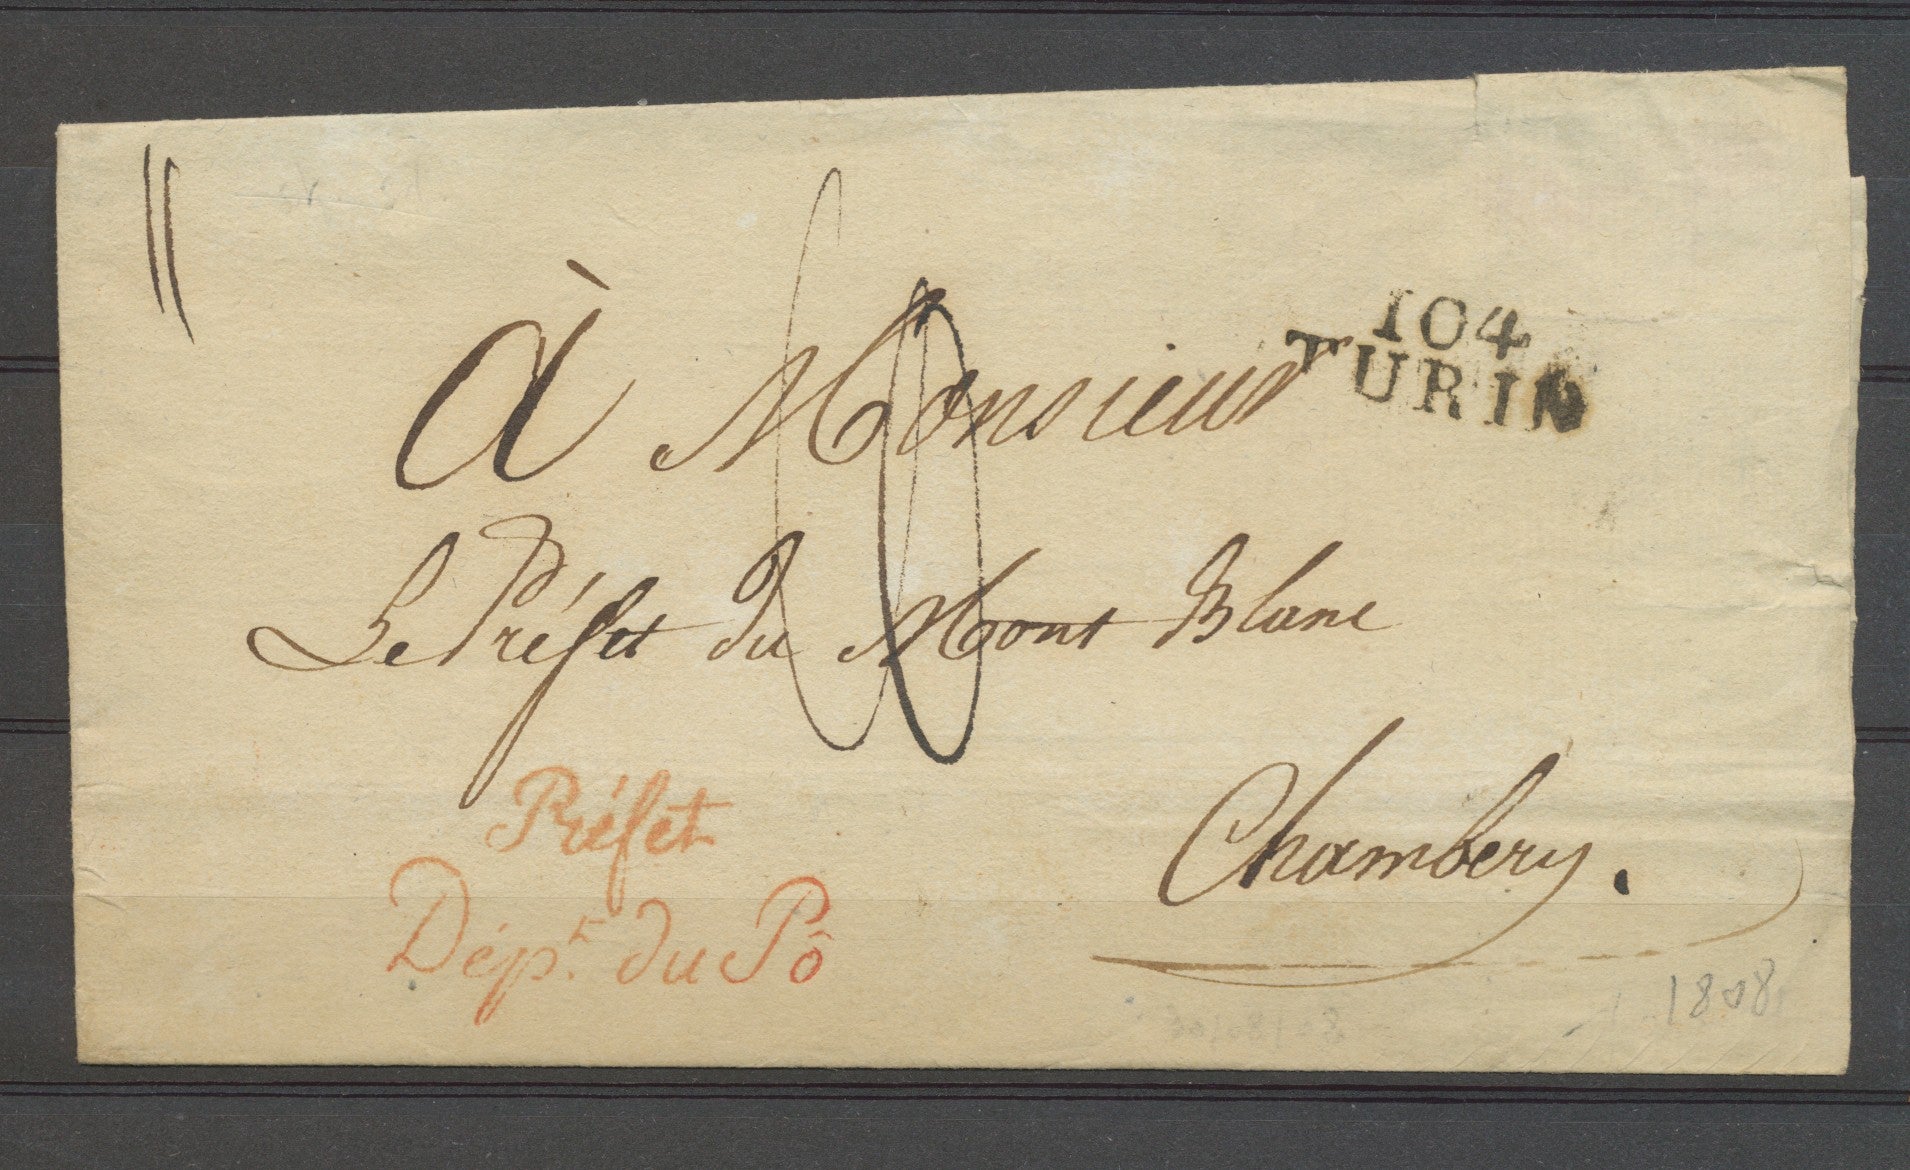 104
TURIN
À Monsieur
Le Préfet du Mont Blanc
Chambery.
Préfet
Dépt. du Pô
1808